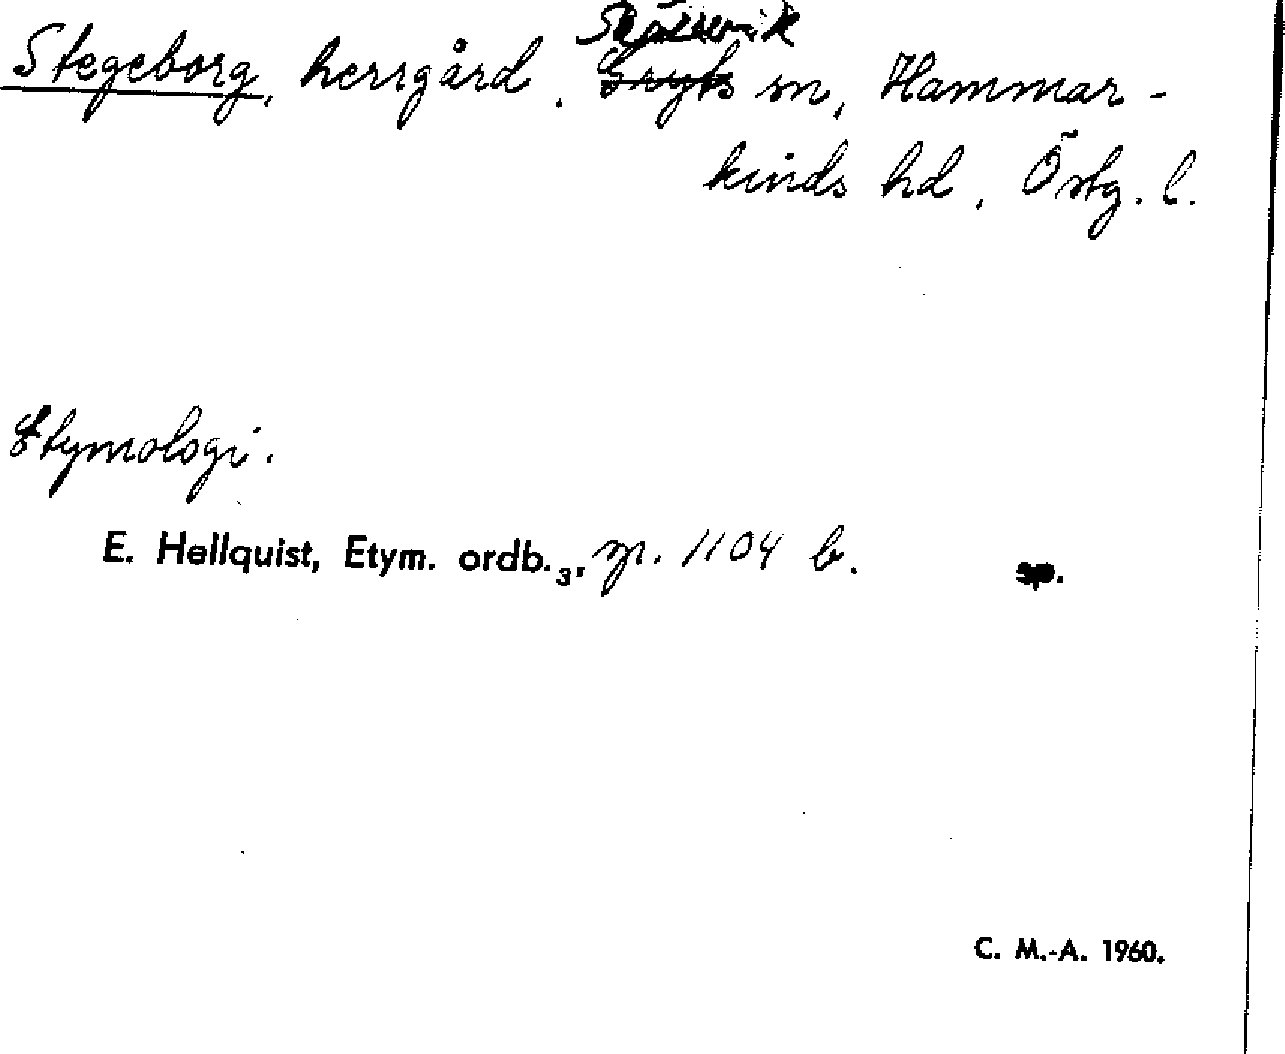 Skällvik
Stegeborg, herrgård, Gryts sn, Hammar-
kinds hd, Östg. l.
Etymologi.
E. Hellquist, Etym. ordb.3, sp. 1104 b.
C. M.-A. 1960.